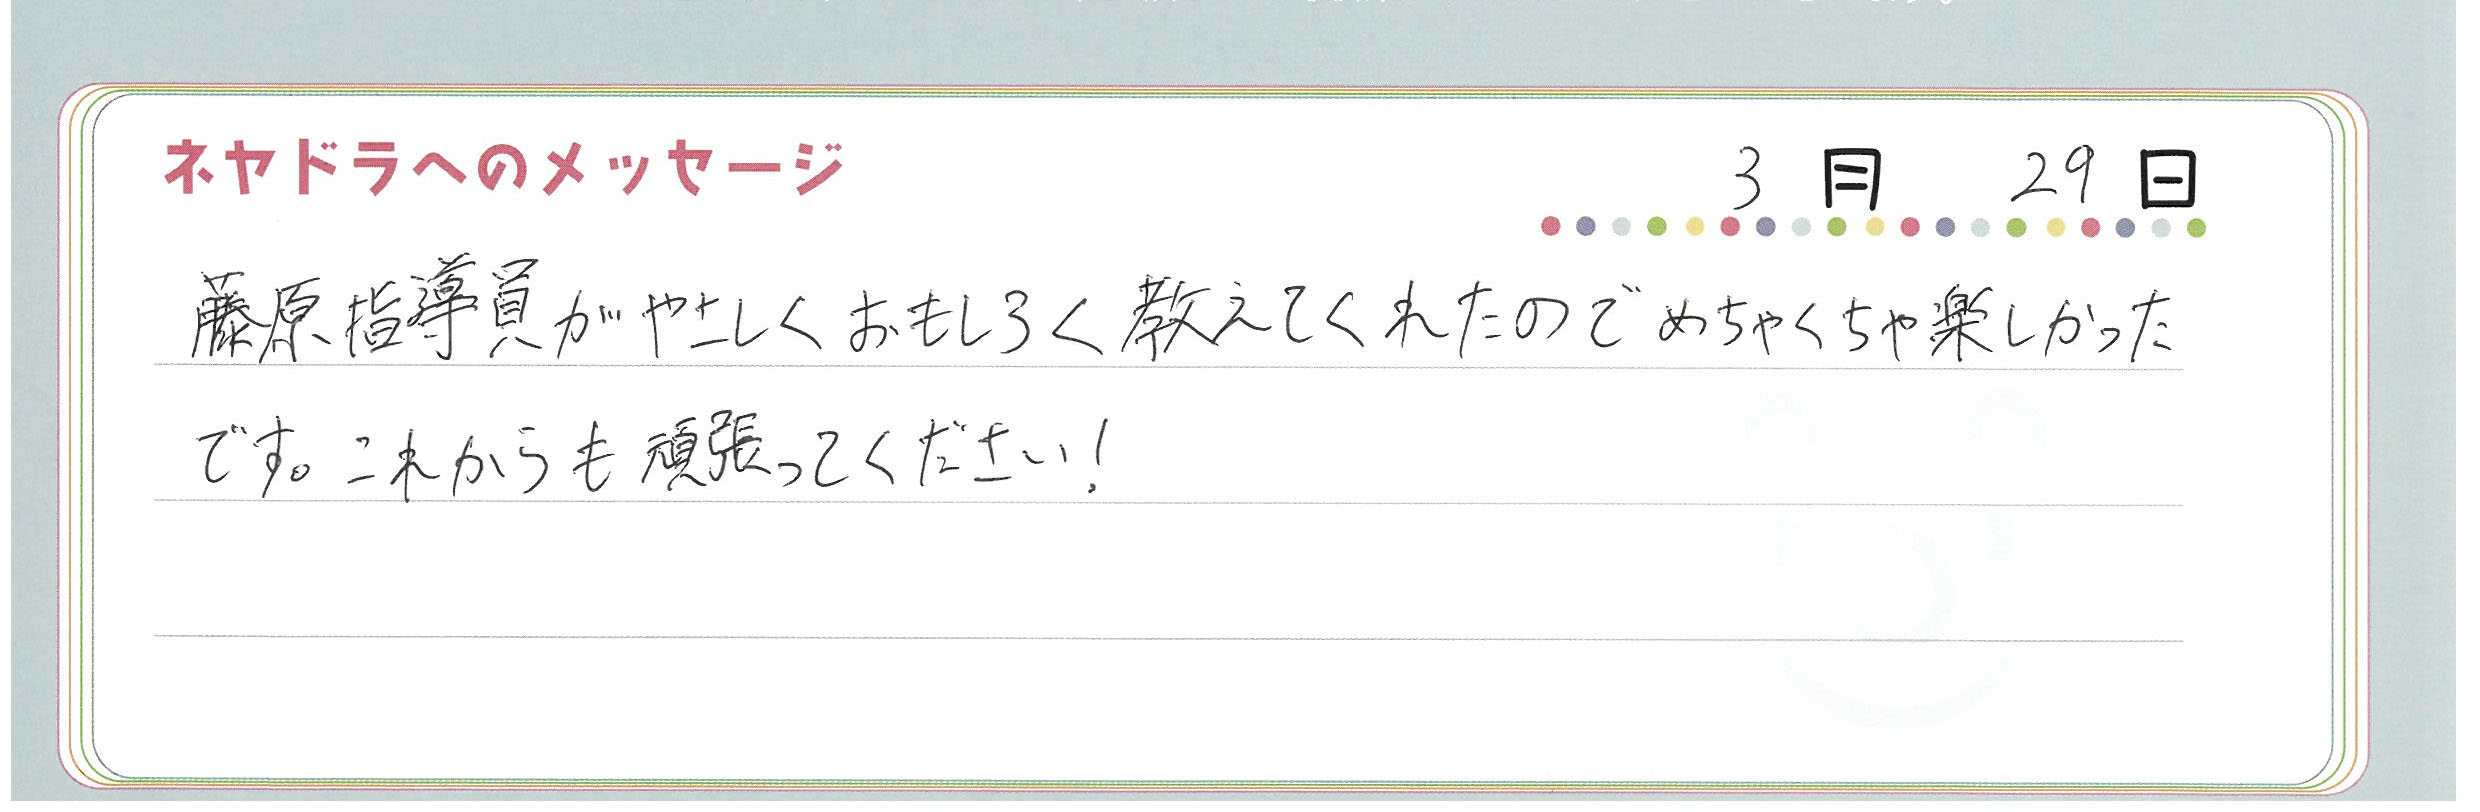 ネヤドラへのメッセージ
3月 29日
藤原指導員がやさしくおもしろく教えてくれたのでめちゃくちゃ楽しかった
です。これからも頑張ってください!